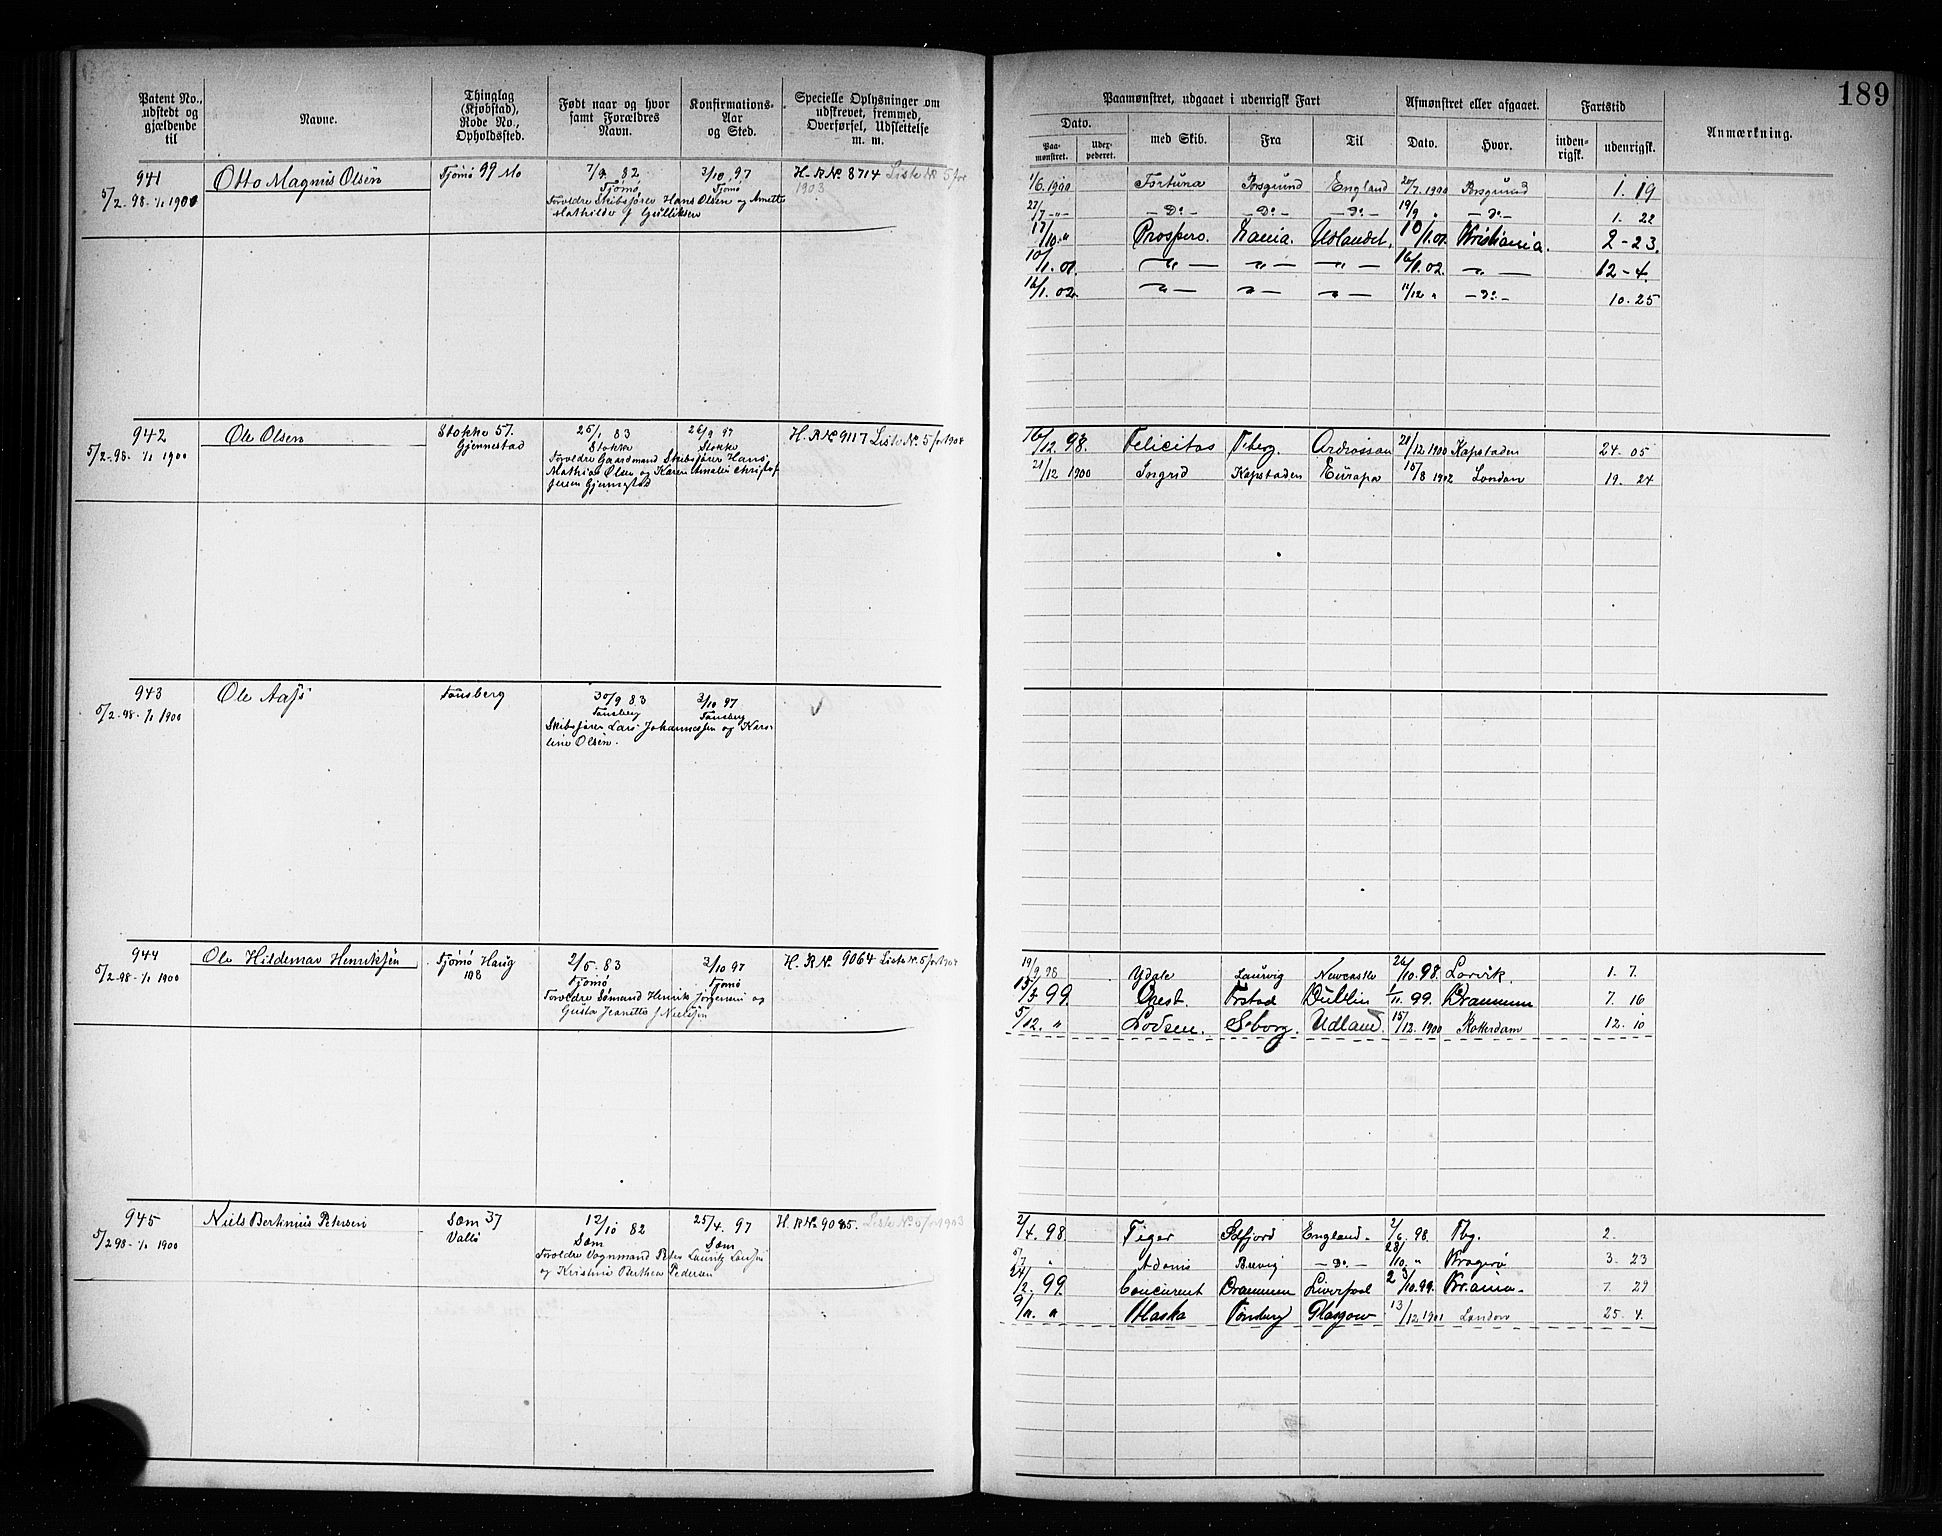 189
Patent No., udstedt og gjældende til
Navne.
Thinglag (Kjøbstad), Rode No., Opholdssted.
Født naar og hvor samt Forældres Navn.
Konfirmations-Aar og Sted.
Specielle Oplysninger om udskrevet, fremmed, Overførsel, Udslettelse m. m.
Paamønstret, udgaaet i udenrigsk Fart
Afmønstret eller afgaaet.
Fartstid
Anmærkning.
Dato.
Paa-mønstret.
Udex-pederet.
med Skib.
Fra
Til
Dato.
Hvor.
inden-rigsk.
udenrigsk.
941 Otto Magnus Olsen Tjømø 99 Mo 7/9 82 3/10 97 H. R No 8714 Liste No 5 for
5/2 - 98 - 1/1 1900 Tjømø Tjømø 1903
Forældre Skibsfører Hans Olsen og Anette
Mathilde f Gulliksen
1/6 1900 Fortuna Porsgrund England 20/7 1900 Porsgrund 1. 19
27/7 -"- - Do - - Do - - Do - 19/9 " - Do - 1. 22
17/10 " Prospero. Udlandet. 10/1. 01. Kristiania. 2 - 23.
10/1. 01. - " - - " - - " - 16/1. 02. - " - 12 - 4.
16/1. 02. - " - - " - - " - 11/12 " - Do - 10. 25
942 Ole Olsen Stokke 57. 25/1 83 26/9 97 H. R No 9117 Liste No. 5 for 1904
5/2 - 98 - 1/1 1900 Gjennestad Stokke Stokke
Forældre Gaardmand Skibsfører Hans
Mathias Olsen og Karen Amalie Christof
fersen Gjennestad
16/12. 98. Felicitas Tbærg. Ardrossan 21/12 1900 Kapstaden 24. 05
21/12 1900 Ingrid Kapstaden Europa 15/8 1902 London 19. 24
943 Ole Aass Tønsberg 30/9 83 3/10 97
5/2 - 98 - 1/1 1900 Tønsberg Tønsberg
Skibsfører Lars Johannessen og Karo-
line Olsen.
944 Ole Hildemar Henriksen Tjømø Haug 2/5. 83 3/10 97 H. R No. 9064 Liste No. 5 for 1904
5/2 - 98 - 1/1 1900 108 Tjømø Tjømø
Forældre Sømand Henrik Jørgensen og
Gusta Jeanette f Nielsen
19/9 98 Ydale Laurvig Newcastle 26/10. 98. Larvik. 1. 7.
15/3 99. Qvest. Frstad Dublin 1/11. 99. Drammen 7. 16
5/12. " Lodsen. S.borg. Udland. 15/12. 1900 Rotterdam 12. 10
945 Niels Bertinius Petersen Sæm 37 12/10 82 25/4. 97 H. R No. 9085. Liste No 5 for 1903
5/2 98 - 1/1 1900 Vallø Sæm Sæm
Forældre Vognmand Peter Lauritz Larsen
og Kristine Berthea Pedersen
2/4. 98 Tiger England. 2/6. 98. Tbg. 2.
5/7 " Adonis Brevig - Do - 28/10. " Kragerø 3. 23
24/2. 99. Concurent Drammen Liverpool 23/10. 99. Kr.ania. 7. 29
9/11. " Alaska Tønsberg Glasgow 13/12 1901 London 25. 4.